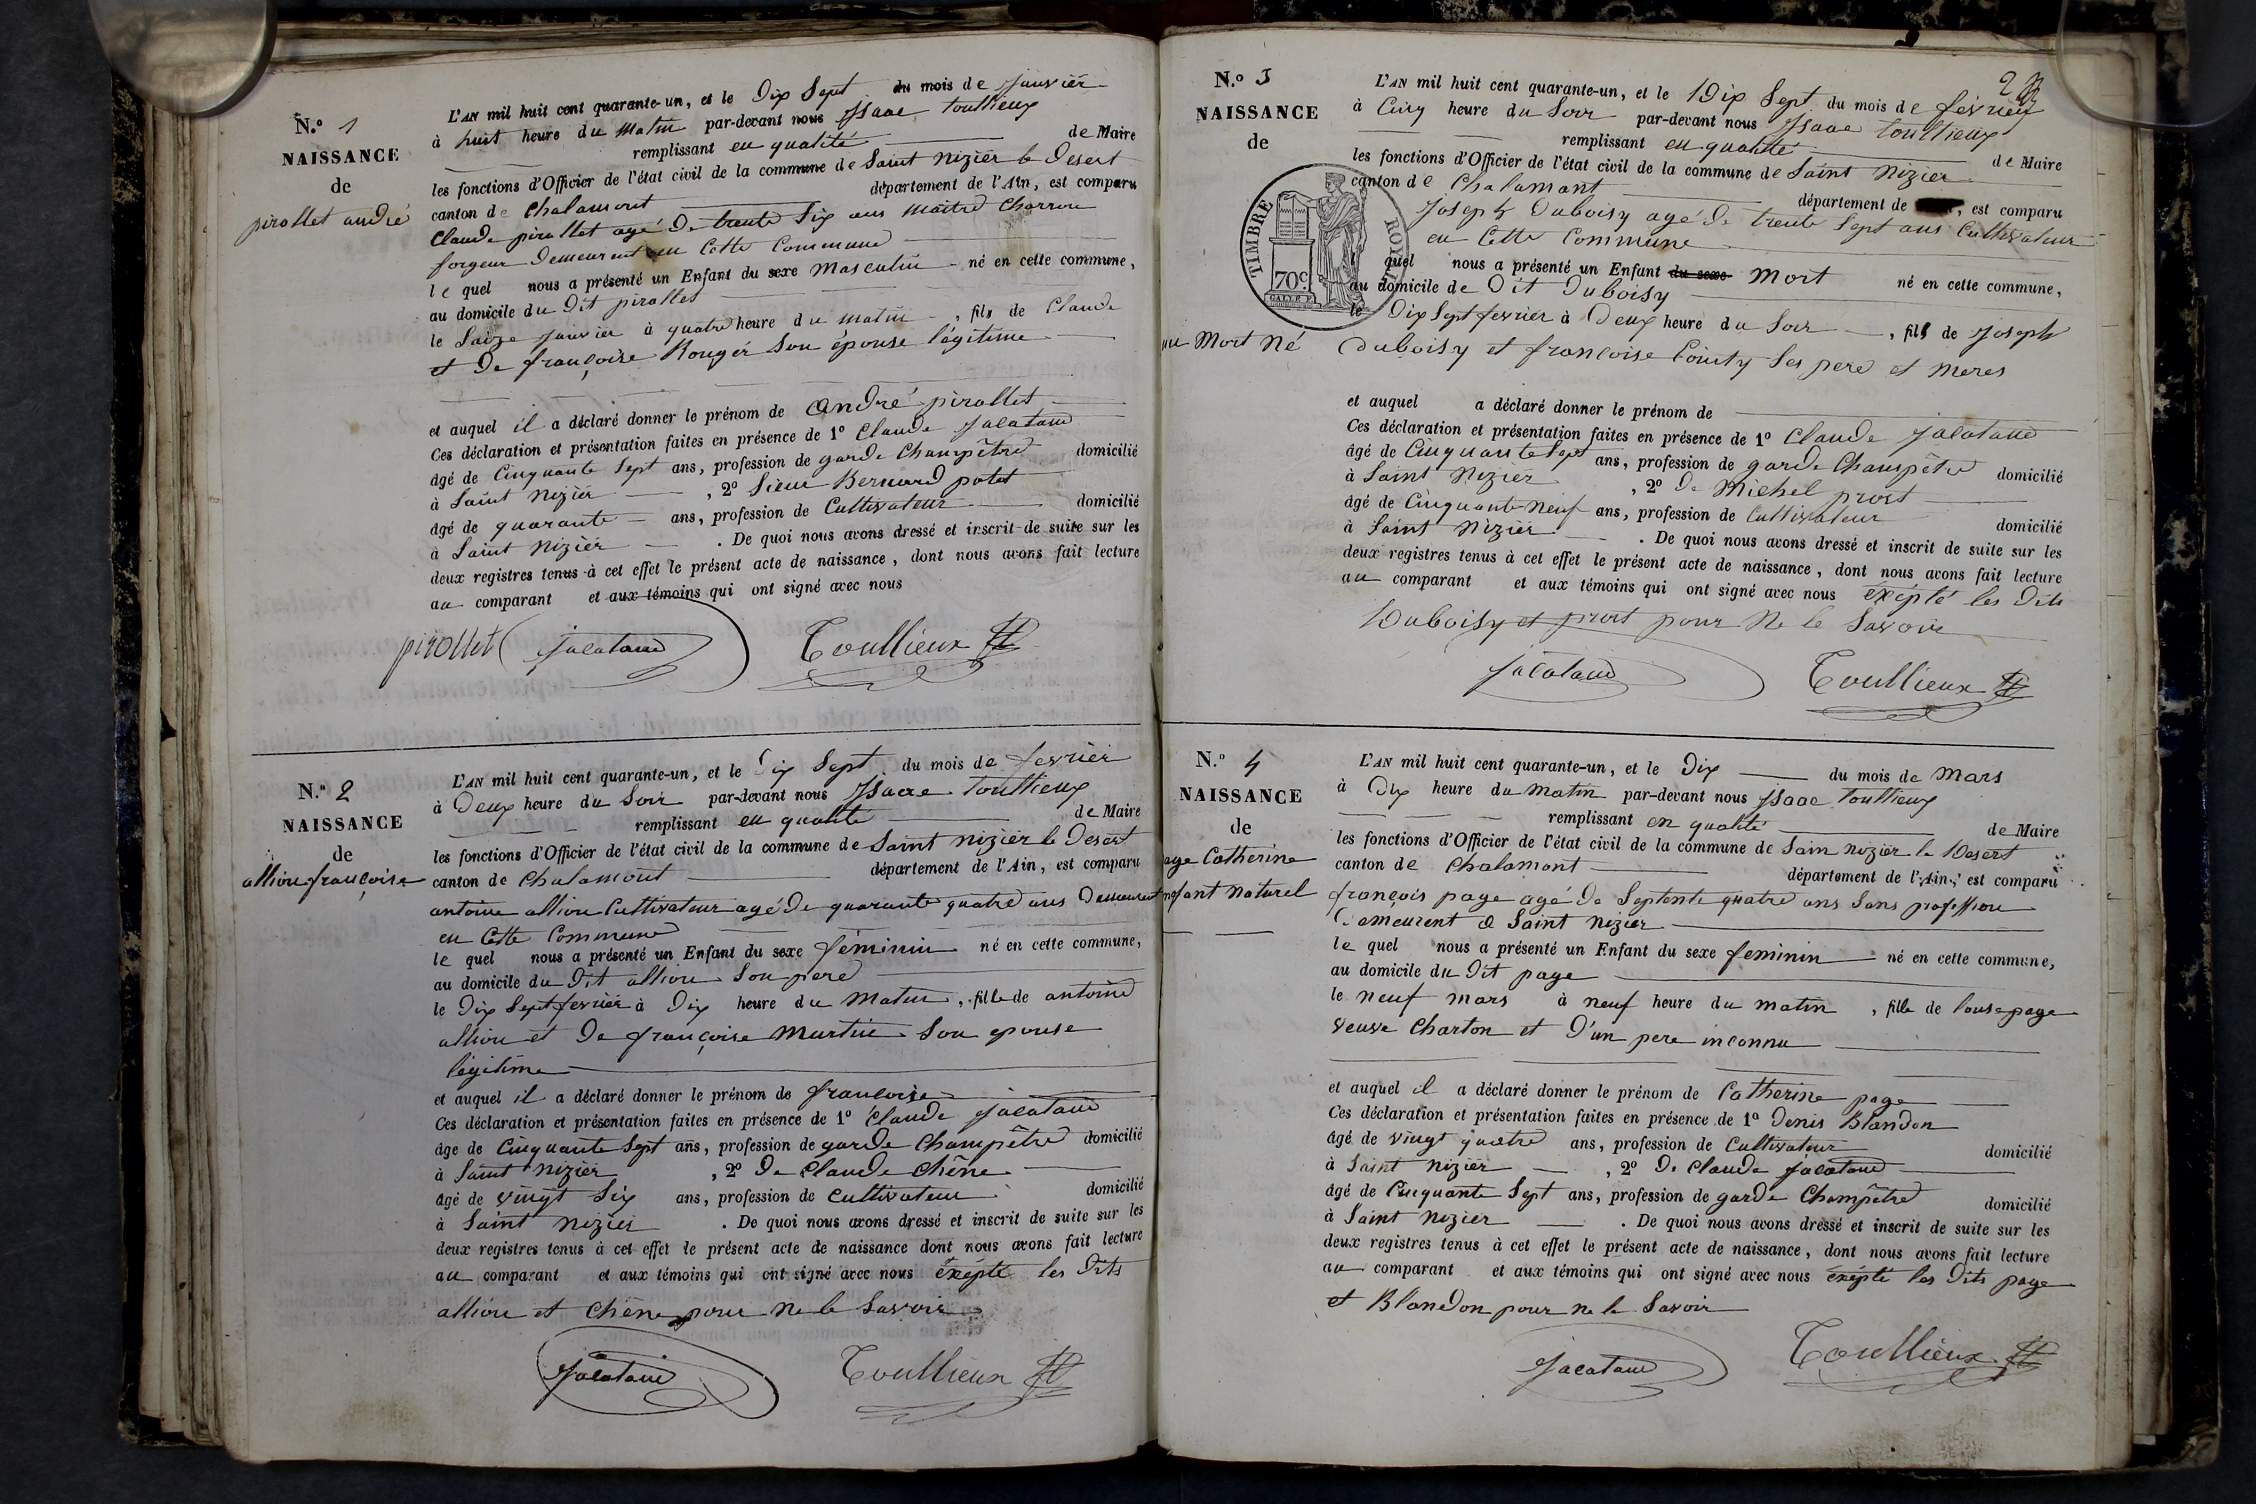 N.º 1
NAISSANCE
de
pirollet andré
L'AN mil huit cent quarante-un, et le Dix Sept du mois de janvier
à huit heure du Matin par-devant nous Isaac toullieux
remplissant en qualité de Maire
les fonctions d'Officier de l'état civil de la commune de Saint Nizier le Desert
canton de Chalamont département de l'Ain, est comparu
Claude pirollet agé De trente Six ans Maitre Charron
forgeur Demeurent en Cette Commune
le quel nous a présenté un Enfant du sexe Masculin né en cette commune,
au domicile du Dit pirollet
le Saize janvier à quatre heure du matin, fils de Claude
et De françoise Rouger Son épouse légitime
et auquel il a déclaré donner le prénom de andré pirollet
Ces déclaration et présentation faites en présence de 1º Claude Jacatane
âgé de Cinquante Sept ans, profession de garde Champêtre domicilié
à Saint Nizier, 2º Sieur Bernard potet
âgé de quarante ans, profession de Cultivateur domicilié
à Saint Nizier. De quoi nous avons dressé et inscrit de suite sur les
deux registres tenus à cet effet le présent acte de naissance, dont nous avons fait lecture
au comparant et aux témoins qui ont signé avec nous
pirollet Jacatane Toullieux
N.º 2
NAISSANCE
de
allion françoise
L'AN mil huit cent quarante-un, et le Dix Sept du mois de fevrier
à Deux heure du Soir par-devant nous Isaac toullieux
remplissant en qualité de Maire
les fonctions d'Officier de l'état civil de la commune de Saint Nizier le Desert
canton de Chalamont département de l'Ain, est comparu
antoine allion Cultivateur agé De quarante quatre ans Demeurent
en Cette Commune
le quel nous a présenté un Enfant du sexe féminin né en cette commune,
au domicile du Dit allion Son pere
le Dix Sept fevrier à Dix heure du Matin, fille de antoine
allion et De françoise Martin Son epouse
légitime
et auquel il a déclaré donner le prénom de françoise
Ces déclaration et présentation faites en présence de 1º Claude Jacatane
âge de Cinquante Sept ans, profession de garde Champêtre domicilié
à Saint Nizier, 2º De Claude Chêne
âgé de vingt Six ans, profession de Cultivateur domicilié
à Saint Nizier. De quoi nous avons dressé et inscrit de suite sur les
deux registres tenus à cet effet le présent acte de naissance dont nous avons fait lecture
au comparant et aux témoins qui ont signé avec nous éxépté les Dits
allion et Chêne pour Ne le Savoir
Jacatane Toullieux
N.º 3
NAISSANCE
de
TIMBRE ROYAL
70c.
un Mort Né
L'AN mil huit cent quarante-un, et le Dix Sept du mois de fevrier
à Cinq heure du Soir par-devant nous Isaac toullieux
remplissant en qualité de Maire
les fonctions d'Officier de l'état civil de la commune de Saint Nizier
canton de Chalamont département de, est comparu
Joseph Duboisy agé De trente Sept ans Cultivateur
en Cette Commune
quel nous a présenté un Enfant du sexe Mort né en cette commune,
au domicile de Dit Duboisy
le Dix Sept fevrier à Deux heure du Soir, fils de Joseph
Duboisy et françoise Cointy Ses pere et Meres
et auquel a déclaré donner le prénom de
Ces déclaration et présentation faites en présence de 1º Claude Jacatane
âgé de Cinquante Sept ans, profession de garde Champêtre domicilié
à Saint Nizier, 2º De Michel prost
âgé de Cinquante Neuf ans, profession de Cultivateur domicilié
à Saint Nizier. De quoi nous avons dressé et inscrit de suite sur les
deux registres tenus à cet effet le présent acte de naissance, dont nous avons fait lecture
au comparant et aux témoins qui ont signé avec nous éxépté les Dits
Duboisy et prost pour Ne le Savoir
Jacatane Toullieux
N.º 4
NAISSANCE
de
age Catherine
enfant Naturel
L'AN mil huit cent quarante-un, et le Dix du mois de Mars
à Dix heure du Matin par-devant nous Isaac toullieux
remplissant en qualité de Maire
les fonctions d'Officier de l'état civil de la commune de Sain Nizier le Desert
canton de Chalamont département de l'Ain, est comparu
françois page agé De Septente quatre ans Sans profession
Demeurent à Saint Nizier
le quel nous a présenté un Enfant du sexe feminin né en cette commune,
au domicile du Dit page
le neuf mars à neuf heure du matin, fille de louse page
veuve Charton et D'un pere inconnu
et auquel il a déclaré donner le prénom de Catherine page
Ces déclaration et présentation faites en présence de 1º Denis Blandon
âgé de vingt quatre ans, profession de Cultivateur domicilié
à Saint Nizier, 2º De Claude Jacatane
âgé de Cinquante Sept ans, profession de garde Champêtre domicilié
à Saint Nizier. De quoi nous avons dressé et inscrit de suite sur les
deux registres tenus à cet effet le présent acte de naissance, dont nous avons fait lecture
au comparant et aux témoins qui ont signé avec nous éxépté les Dits page
et Blandon pour ne le Savoir
Jacatane Toullieux